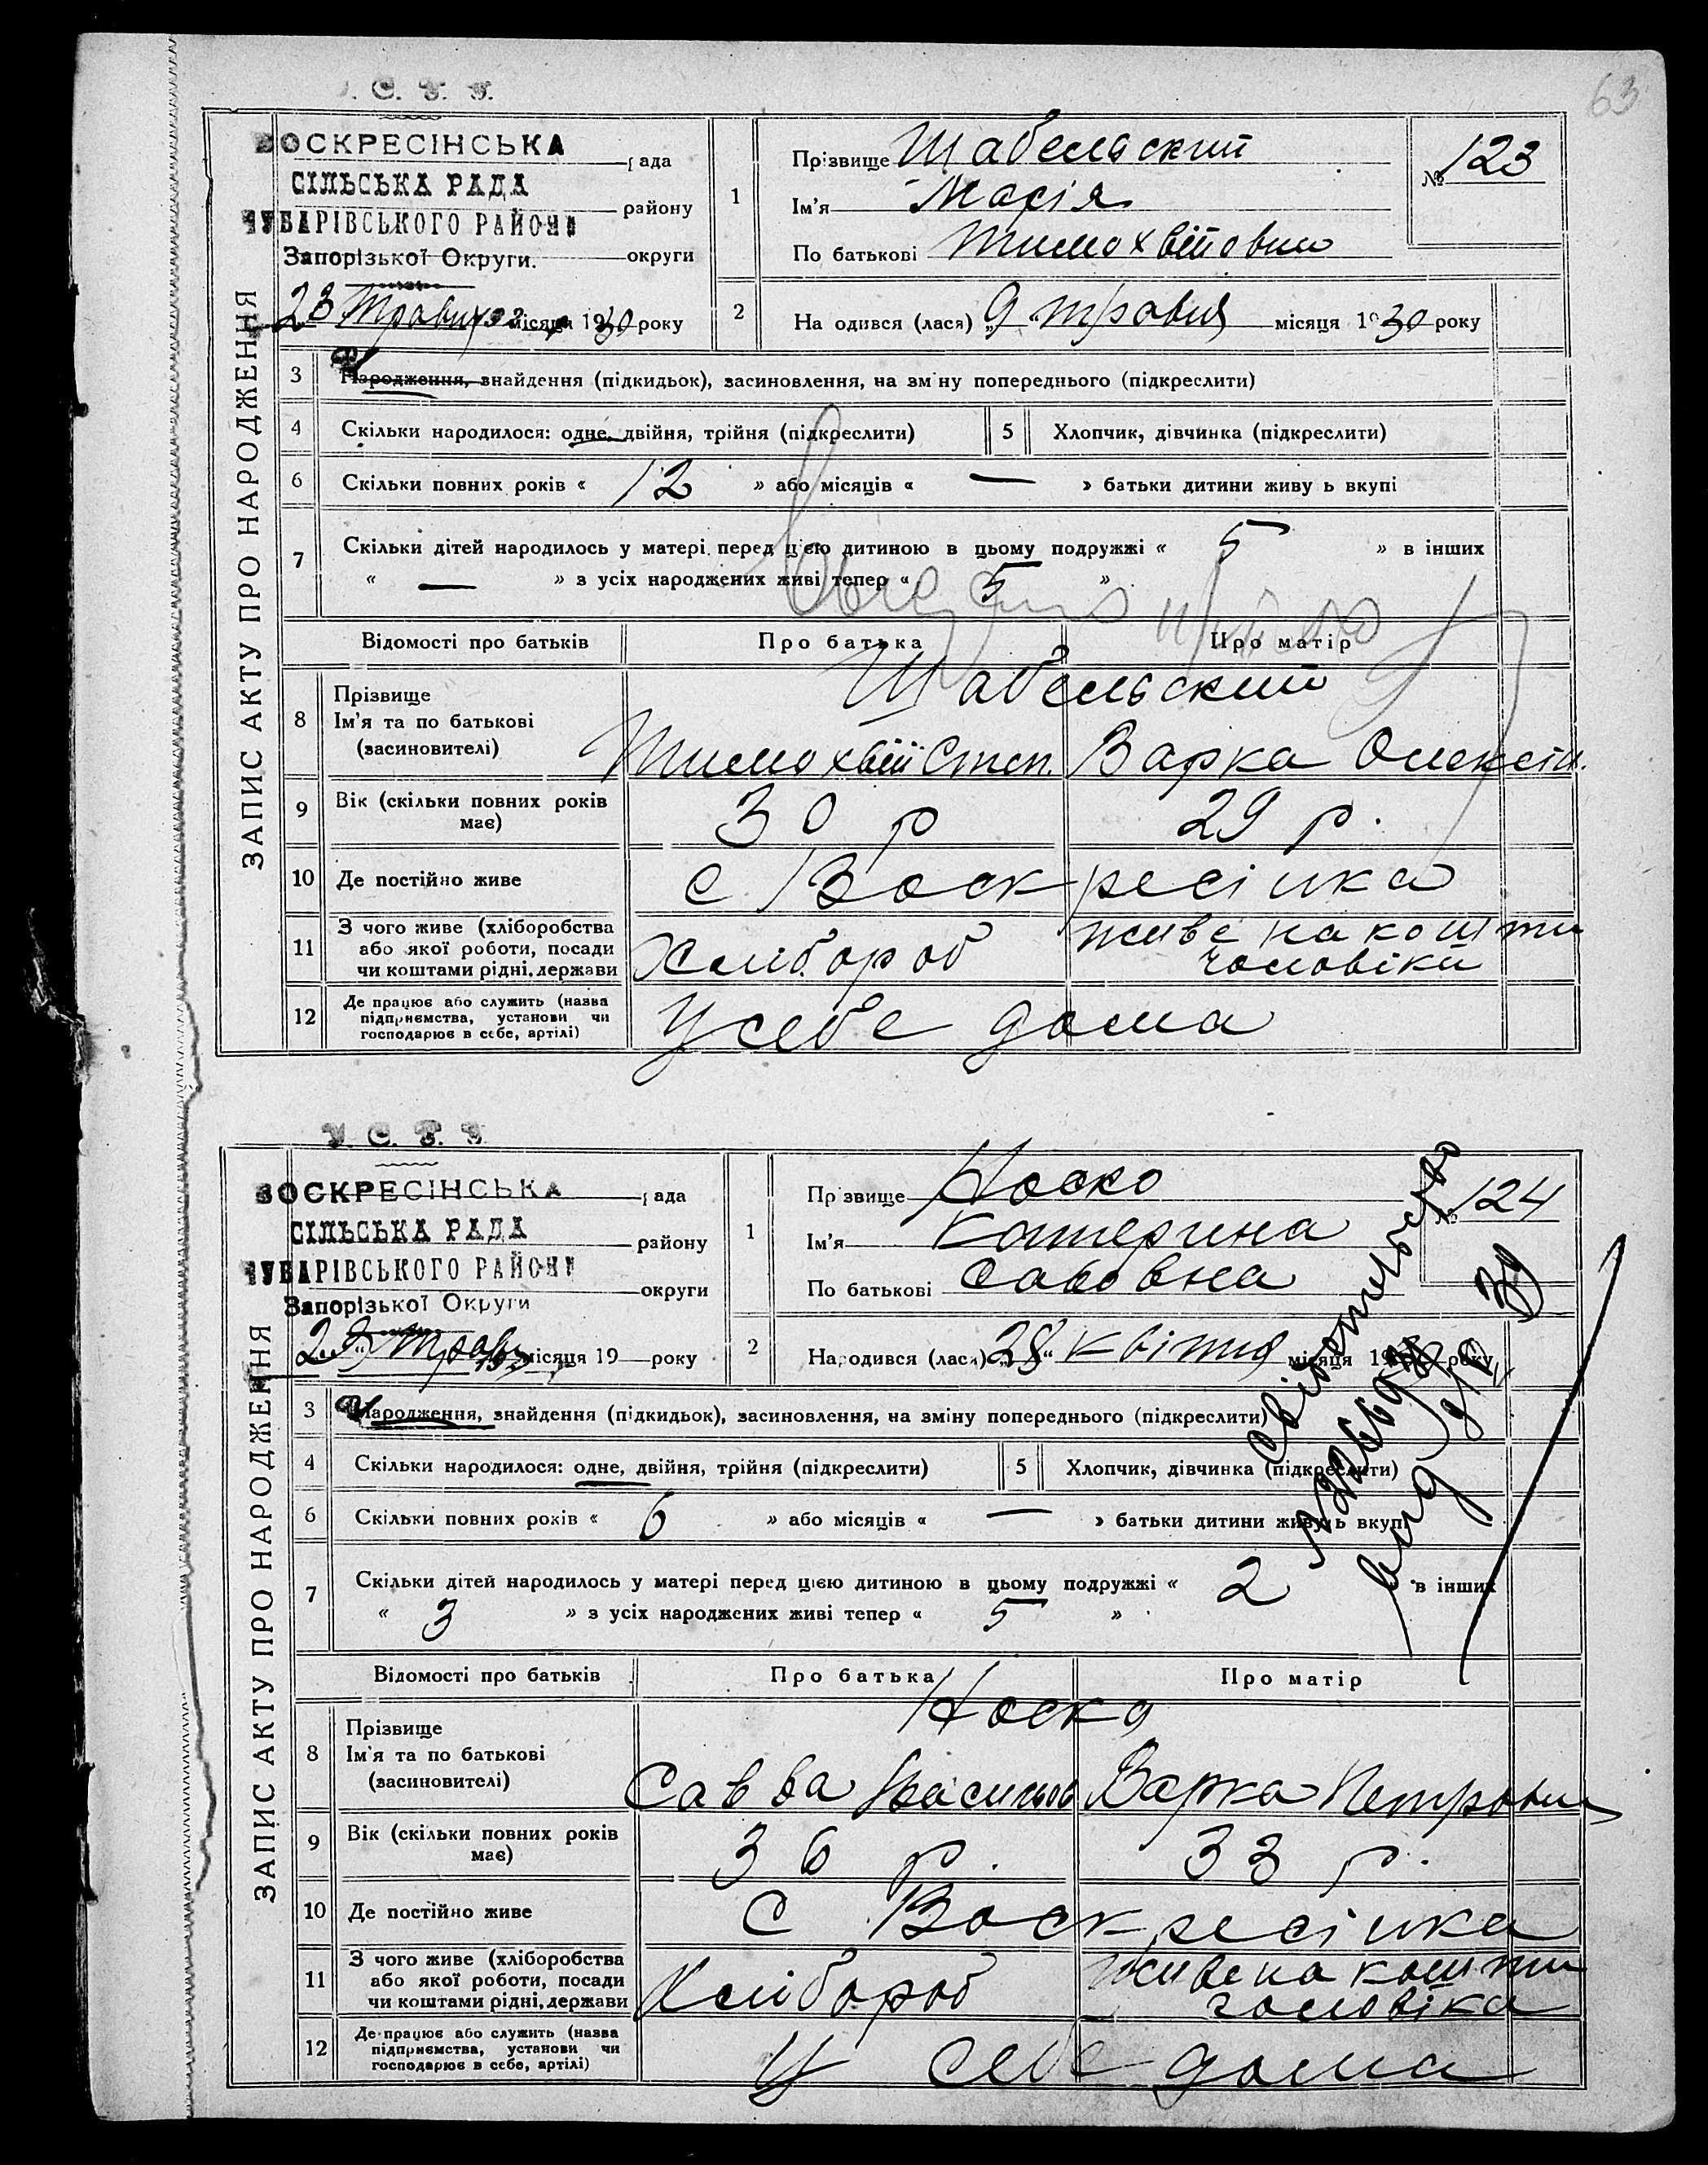 63
У. С. Р. Р.
ВОСКРЕСІНСЬКА рада
СІЛЬСЬКА РАДА
ЧУБАРІВСЬКОГО РАЙОНУ району
Запорізької Округи. округи
23 Травня місяця 1930 року
ЗАПИС АКТУ ПРО НАРОДЖЕННЯ
№ 123
1 Прізвище Шабельский
Ім'я Марія
По батькові Тимохвіївни
2 Народився (лася) „9“ травня місяця 1930 року
3 Народження, знайдення (підкидьок), засиновлення, на зміну попереднього (підкреслити)
4 Скільки народилося: одне, двійня, трійня (підкреслити) 5 Хлопчик, дівчинка (підкреслити)
6 Скільки повних років « 12 » або місяців « — » батьки дитини живуть вкупі
7 Скільки дітей народилось у матері перед цією дитиною в цьому подружжі « 5 » в інших
« — » з усіх народжених живі тепер « 5 »
Відомості про батьків Про батька Про матір
8 Прізвище Шабельский
Ім'я та по батькові
(засиновителі) Тимохвій Степ. Варка Олексіи.
9 Вік (скільки повних років
має) 30 р 29 р.
10 Де постійно живе с Воскресінка
11 З чого живе (хліборобства
або якої роботи, посади
чи коштами рідні, держави Хлібороб живе на кошти
чоловіка
12 Де працює або служить (назва
підприємства, установи чи
господарює в себе, артілі) У себе дома
У. С. Р. Р.
ВОСКРЕСІНСЬКА рада
СІЛЬСЬКА РАДА району
ЧУБАРІВСЬКОГО РАЙОНУ
Запорізької Округи округи
23 Травн місяця 19 року
ЗАПИС АКТУ ПРО НАРОДЖЕННЯ
№ 124
1 Прізвище Носко
Ім'я Катерина
По батькові Савовна
2 Народився (лася) „28“ квітня місяця 19 року
3 Народження, знайдення (підкидьок), засиновлення, на зміну попереднього (підкреслити)
4 Скільки народилося: одне, двійня, трійня (підкреслити) 5 Хлопчик, дівчинка (підкреслити)
6 Скільки повних років « 6 » або місяців « — » батьки дитини живуть вкупі
7 Скільки дітей народилось у матері перед цією дитиною в цьому подружжі « 2 в інших
« 3 » з усіх народжених живі тепер « 5 »
Відомості про батьків Про батька Про матір
8 Прізвище Носко
Ім'я та по батькові
(засиновителі) Савва Васильов Варка Петровна
9 Вік (скільки повних років
має) 36 р. 33 р.
10 Де постійно живе с Воскресінка
11 З чого живе (хліборобства
або якої роботи, посади
чи коштами рідні, держави Хлібороб живе на кошти
чоловіка
12 Де працює або служить (назва
підприємства, установи чи
господарює в себе, артілі) У себе дома